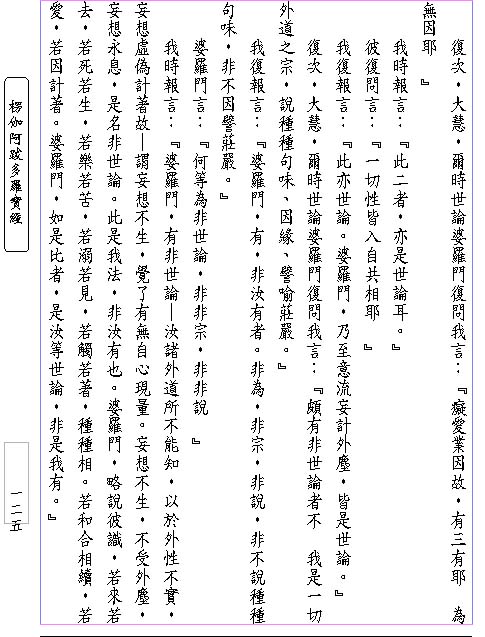 復次，大慧，爾時世論婆羅門復問我言：『癡愛業因故，有三有耶　為
無因耶　』
我時報言：『此二者，亦是世論耳。』
彼復問言：『一切性皆入自共相耶　』
我復報言：『此亦世論。婆羅門，乃至意流妄計外塵，皆是世論。』
復次，大慧，爾時世論婆羅門復問我言：『頗有非世論者不　我是一切
外道之宗，說種種句味、因緣、譬喻莊嚴。』
我復報言：『婆羅門，有，非汝有者。非為，非宗，非說，非不說種種
句味，非不因譬莊嚴。』
婆羅門言：『何等為非世論，非非宗，非非說　』
我時報言：『婆羅門，有非世論—汝諸外道所不能知，以於外性不實，
妄想虛偽計著故—謂妄想不生，覺了有無自心現量。妄想不生，不受外塵，
妄想永息，是名非世論。此是我法，非汝有也。婆羅門，略說彼識，若來若
去，若死若生，若樂若苦，若溺若見，若觸若著，種種相。若和合相續，若
愛，若因計著。婆羅門，如是比者，是汝等世論，非是我有。』
楞伽阿跋多羅寶經
一二五